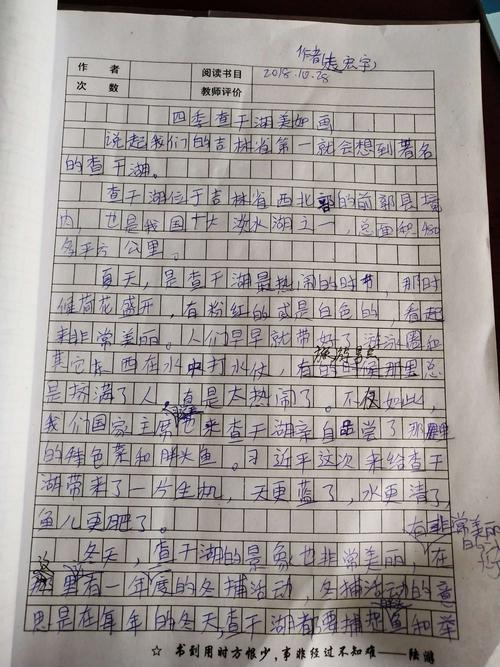 作者赵宏宇
2018.10.28
作 者 阅读书目
次 数 教师评价
四季查干湖美如画
说起我们的吉林省第一就会想到著名
的查干湖。
查干湖位于吉林省西北部的前郭县境
内,也是我国十大淡水湖之一,总面积480
多平方公里。
夏天,是查干湖最热闹的时节,那时
候荷花盛开,有粉红的或是白色的,看起
来非常美丽。人们早早就带好了游泳圈和
其它东西在水中打水仗,有的时候那里总
是挤满了人。真是太热闹了。不仅如此,
我们国家主席也来查干湖亲自品尝了那里
的特色菜和胖头鱼。习近平这次来给查干
湖带来了一片生机,天更蓝了,水更清了,
鱼儿更肥了。
有非常美丽的
冬天,查干湖的景象也非常美丽,在
这里有一年度的冬捕活动,冬捕活动的意
思是在每年的冬天,查干湖都要捕捉鱼和举
☆ 书到用时方恨少,事非经过不知难——陆游